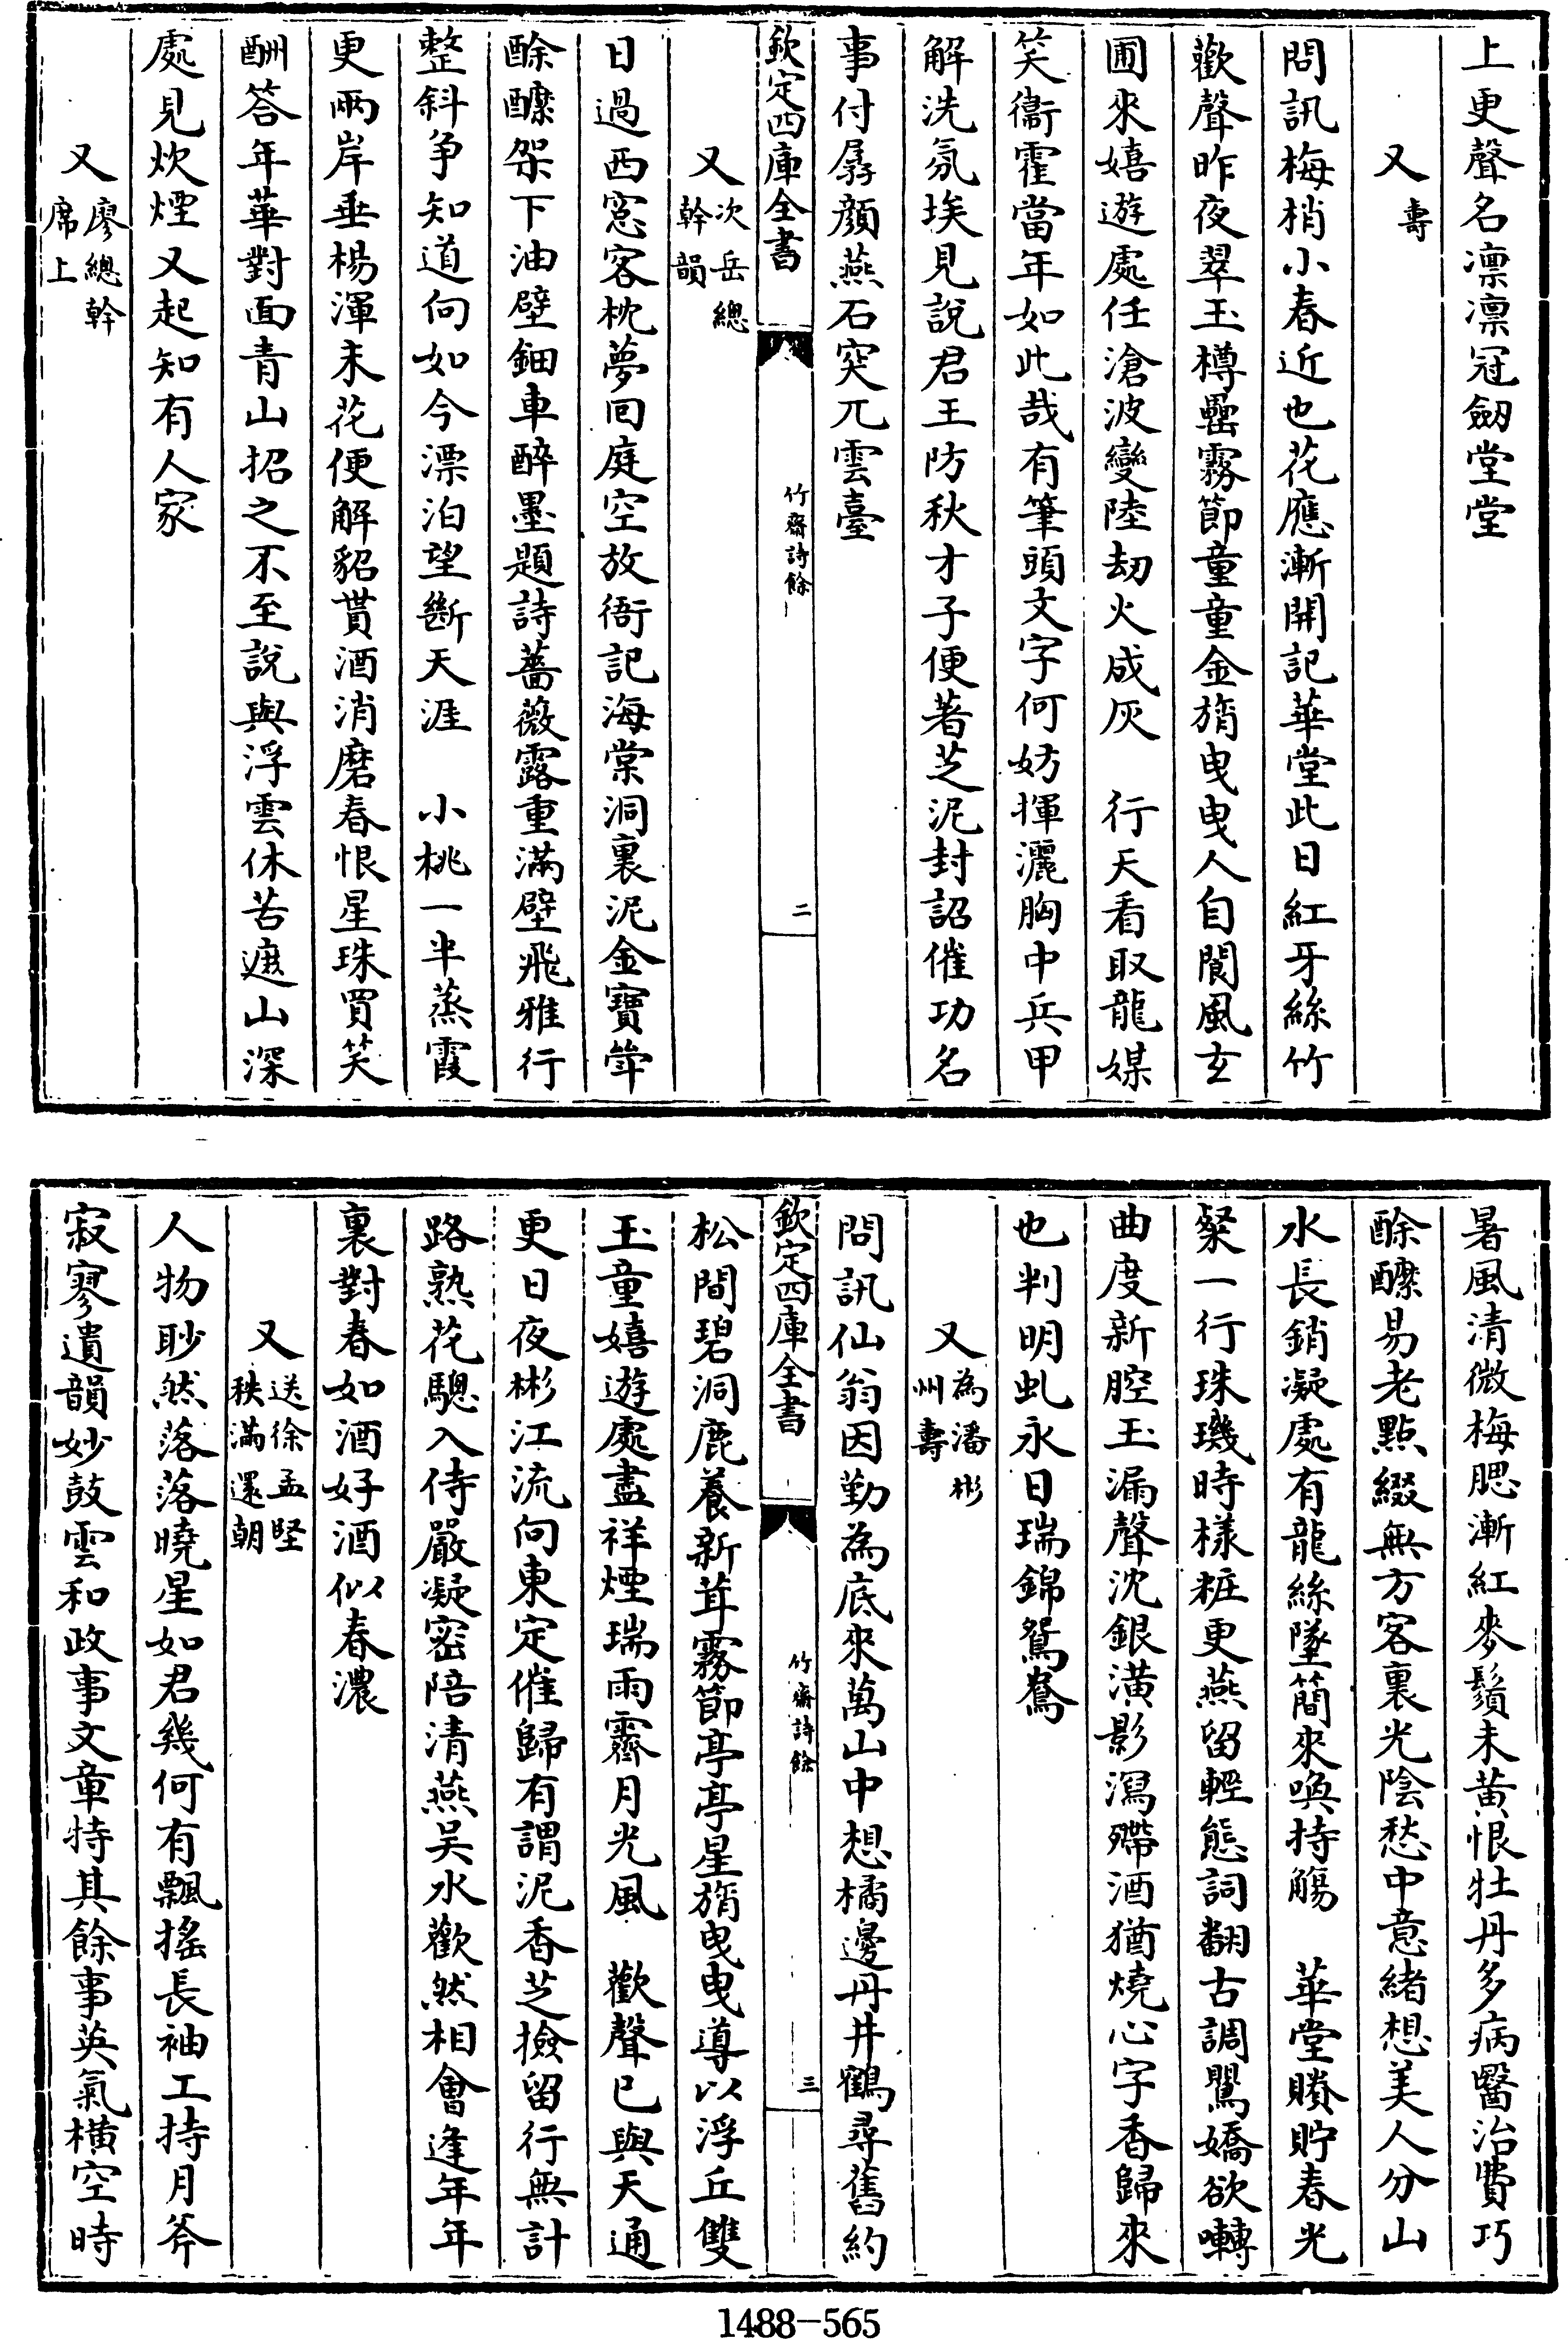 上更聲名凛凛冠劒堂堂
又壽
問訊梅梢小春近也花應漸開記華堂此日紅牙絲竹
歡聲昨夜翠玉樽罍霧節童童金旓曳曳人自閬風玄
圃來嬉遊處任滄波變陸劫火成灰　行天看取龍媒
笑衞霍當年如此哉有筆頭文字何妨揮灑胸中兵甲
解洗氛埃見說君王防秋才子便著芝泥封詔催功名
事付孱顏燕石突兀雲臺
欽定四庫全書
竹齋詩餘
二
又次岳總
幹韻
日過西窓客枕夢回庭空放衙記海棠洞裏泥金寶斝
酴醾架下油壁鈿車醉墨題詩薔薇露重滿壁飛雅行
整斜争知道向如今漂泊望斷天涯　小桃一半蒸霞
更兩岸垂楊渾未花便解貂貰酒消磨春恨量珠買笑
酬答年華對面青山招之不至說與浮雲休苦遮山深
處見炊煙又起知有人家
又廖總幹
席上
暑風清微梅腮漸紅麥鬚未黄恨牡丹多病醫治費巧
酴醾易老點綴無方客裏光陰愁中意緒想美人分山
水長銷凝處有龍絲墜簡來喚持觴　華堂賸貯春光
粲一行珠璣時様粧更燕留輕態詞翻古調鸎嬌欲囀
曲度新腔玉漏聲沈銀潢影瀉殢酒猶燒心字香歸來
也判明虬永日瑞錦鴛鴦
又為潘彬
州壽
問訊仙翁因勤為底來萬山中想橘邊丹井鶴尋舊約
欽定四庫全書
竹齋詩餘
三
松間碧洞鹿養新茸霧節亭亭星旓曳曳導以浮丘雙
玉童嬉遊處盡祥煙瑞雨霽月光風　歡聲已與天通
更日夜彬江流向東定催歸有謂泥香芝撿留行無計
路熟花驄入侍嚴凝密陪清燕吴水歡然相會逢年年
裏對春如酒好酒似春濃
又送徐孟堅
秩滿還朝
人物眇然落落曉星如君幾何有飄搖長袖工持月斧
寂寥遺韻妙鼓雲和政事文章特其餘事英氣横空時
1488-565